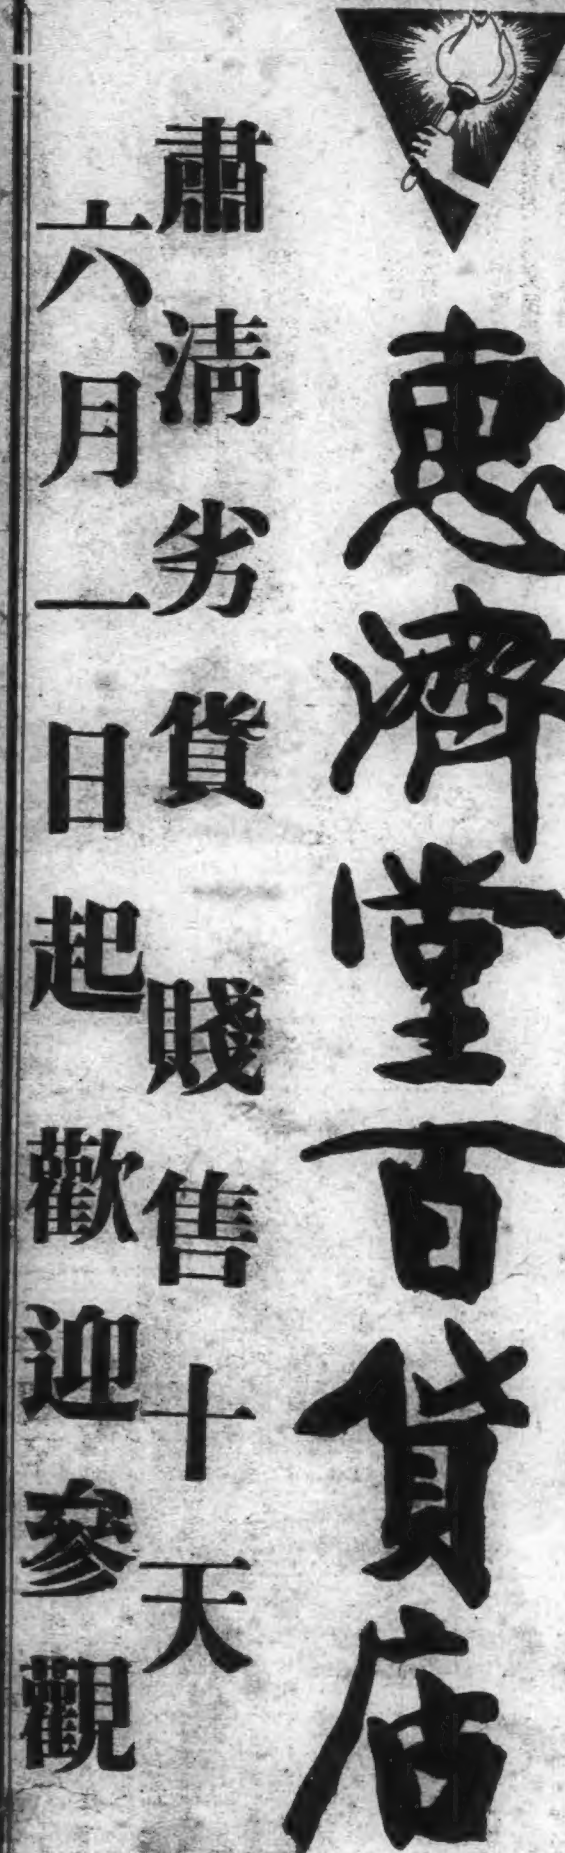 惠濟堂百貨店
肅清劣貨 賤售十天
六月一日起歡迎參觀